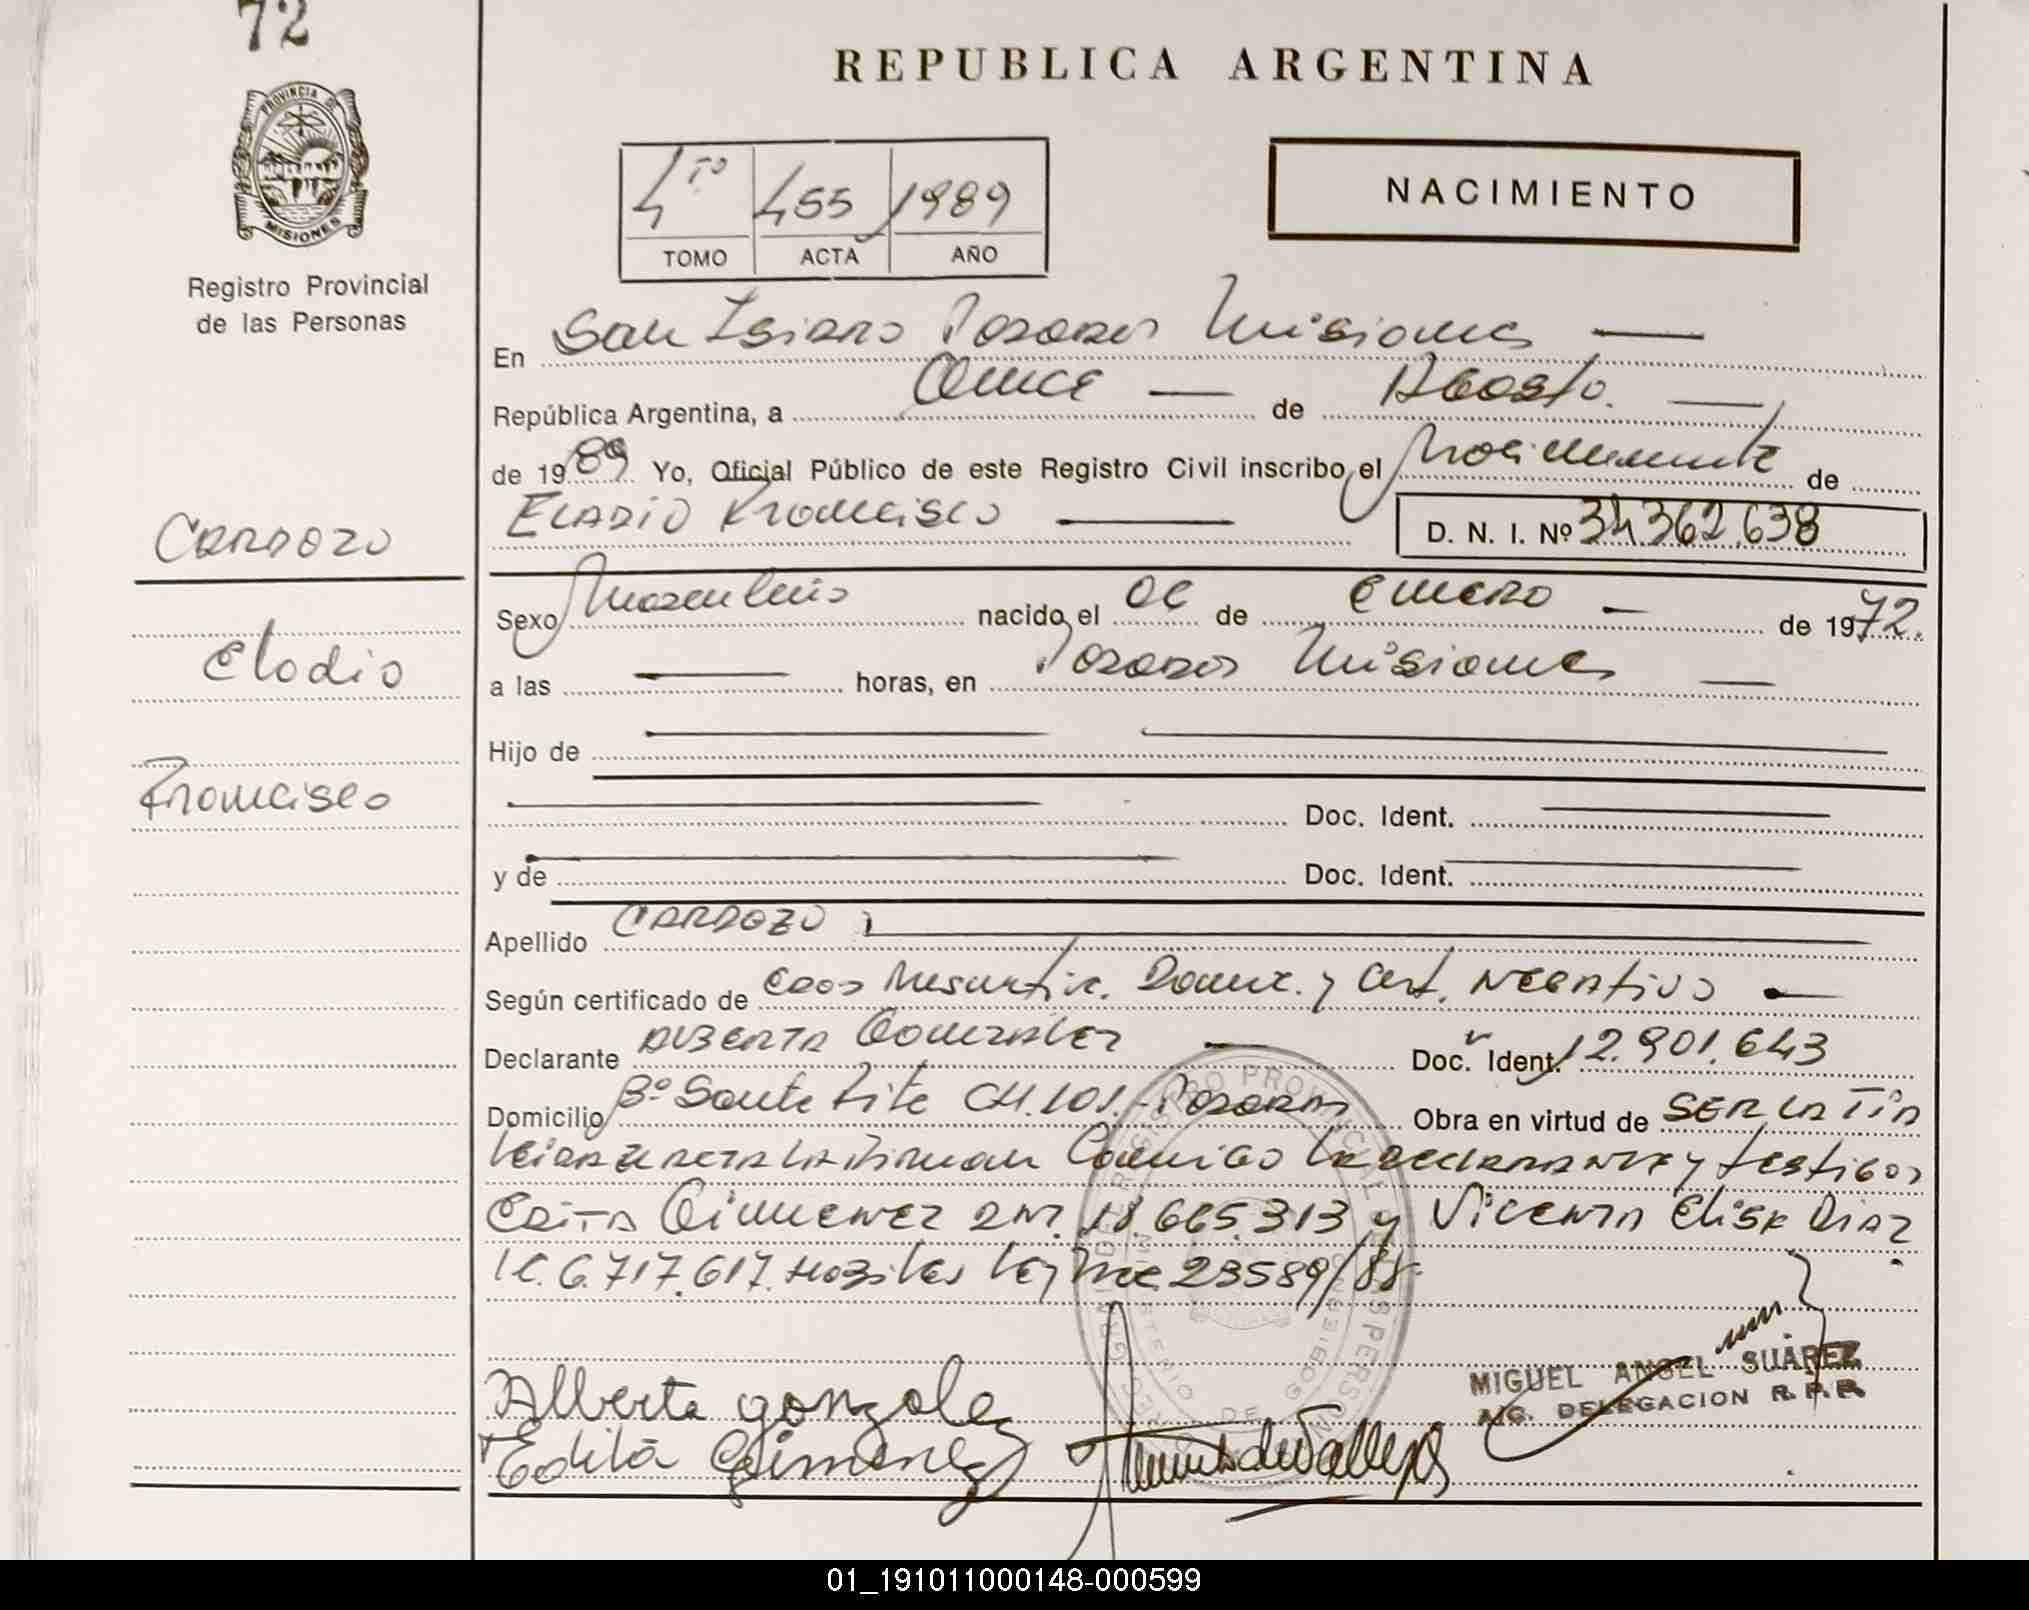 72
REPUBLICA ARGENTINA
PROVINCIA DE
MISIONES
Registro Provincial
de las Personas
4to 455 1989
TOMO ACTA AÑO
NACIMIENTO
En San Isidro Posadas Misiones
República Argentina, a Quince de Agosto.
de 1989 Yo, Oficial Público de este Registro Civil inscribo el Nacimiento de
ELADIO Francisco D. N. I. Nº 34.362.638
CARDOZO
Sexo Masculino nacido el 06 de ENERO de 1972.
Eladio
a las horas, en Posadas Misiones
Hijo de
Francisco
Doc. Ident.
y de Doc. Ident.
Apellido CARDOZO
Según certificado de y Cert. NEGATIVO
Declarante ALBERTA GONZALEZ Doc. Ident. 12.901.643
Domicilio Bº Santa Rita CH.101.- Posadas Obra en virtud de SER LA TIA
Leida el ACTA LA Firman Conmigo La declarante y testigos
EDITA Gimenez DNI. 18.665.313 y Vicenta Elisa Diaz
LC. 6.717.617. 23589/88.
Alberta gonzalez
Edita Gimenez
MIGUEL ANGEL SUÁREZ
A/C. DELEGACION R. P. P.
01_191011000148-000599